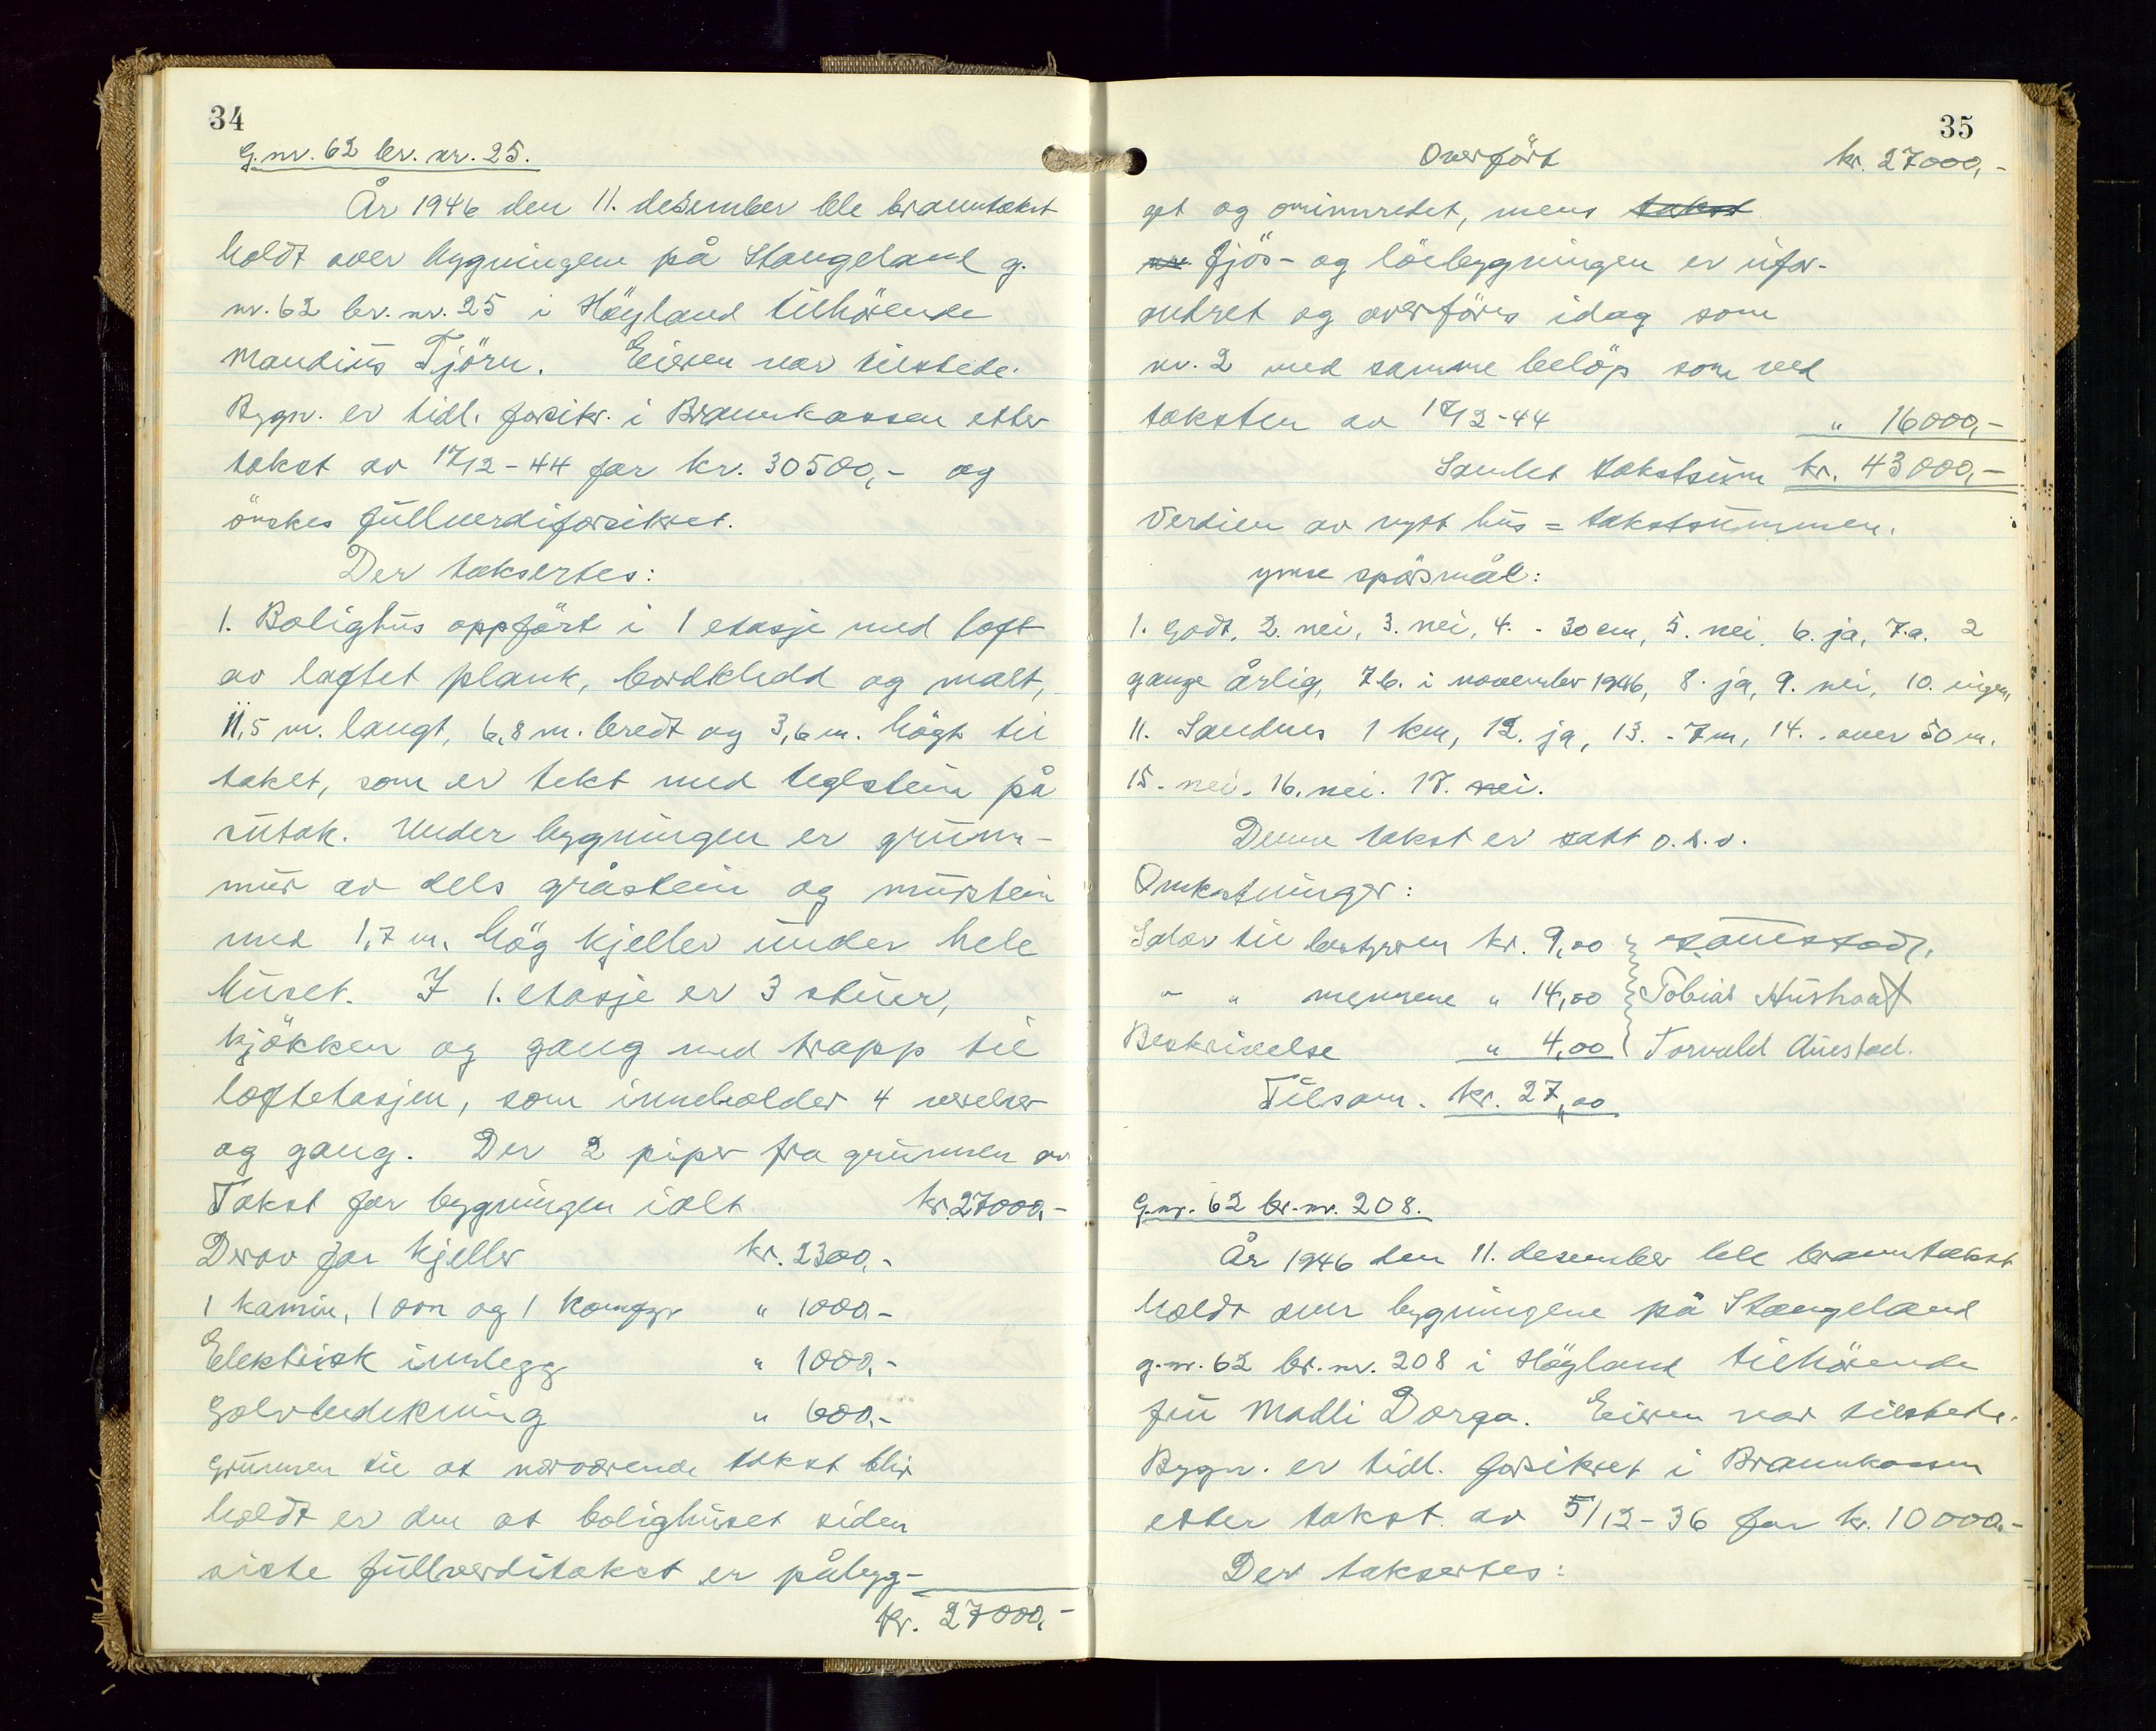 34
G.nr. 62 br. nr. 25.
År 1946 den 11. desember ble branntakst
holdt over bygningene på Stangeland g.
nr. 62 br. nr. 25 i Höyland tilhörende
Maudius Tjörn. Eieren var tilstede.
Bygn. er tidl. forsikr. i Brannkassen etter
takst av 17/12-44 for kr. 30500,- og
önskes fullverdiforsikret.
Der taksertes:
1. Bolighus oppfört i 1 etasje med loft
av laftet plank, bordkledd og malt,
11,5 m. langt, 6,8 m. bredt og 3,6 m. högt til
taket, som er tekt med teglstein på
sutak. Under bygningen er grunn-
mur av dels gråstein og murstein
med 1,7 m. hög kjeller under hele
huset. I 1. etasje er 3 stuer,
kjökken og gang med trapp til
loftetasjen, som inneholder 4 verelser
og gang. Der 2 piper fra grunnen av
Takst for bygningen ialt kr. 27000,-
Derav for kjeller kr. 2300,-
1 kamin, 1 ovn og 1 komfyr " 1000,-
Elektrisk innlegg " 1000,-
Golvbedekning " 600,-
Grunnen til at nærværende takst blir
holdt er den at bolighuset siden
siste fullverditakst er påbyg-
kr. 27000,-
35
Overfört kr. 27000,-
get og ominnredet, mens takst
nr. fjös- og löebygningen er ufor-
andret og overföres idag som
nr. 2 med samme belöp som ved
taksten av 17/12-44 " 16000,-
Samlet takstsum kr. 43000,-
Verdien av nytt hus = takstsummen.
Ymse spörsmål:
1. godt, 2. nei, 3. nei, 4. - 30 cm, 5. nei, 6. ja, 7.a. 2
gange årlig, 7b. i november 1946, 8. ja, 9. nei, 10. ingen,
11. Sandnes 1 km, 12. ja, 13. - 7m, 14. - over 50 m.
15. nei. 16. nei. 17. nei.
Denne takst er satt o.s.v.
Omkostninger:
Salær til bestyreren kr. 9,00
" " mennene " 14,00 Tobias Hushovd
Beskrivelse " 4,00 Torvald Austad.
Tilsam. kr. 27,00
G.nr. 62 br.nr. 208.
År 1946 den 11. desember ble branntakst
holdt over bygningene på Stangeland
g.nr. 62 br.nr. 208 i Höyland tilhörende
fru Madli Dorga. Eieren var tilstede.
Bygn. er tidl. forsikret i Brannkassen
etter takst av 5/12-36 for kr. 10000.-
Der taksertes: